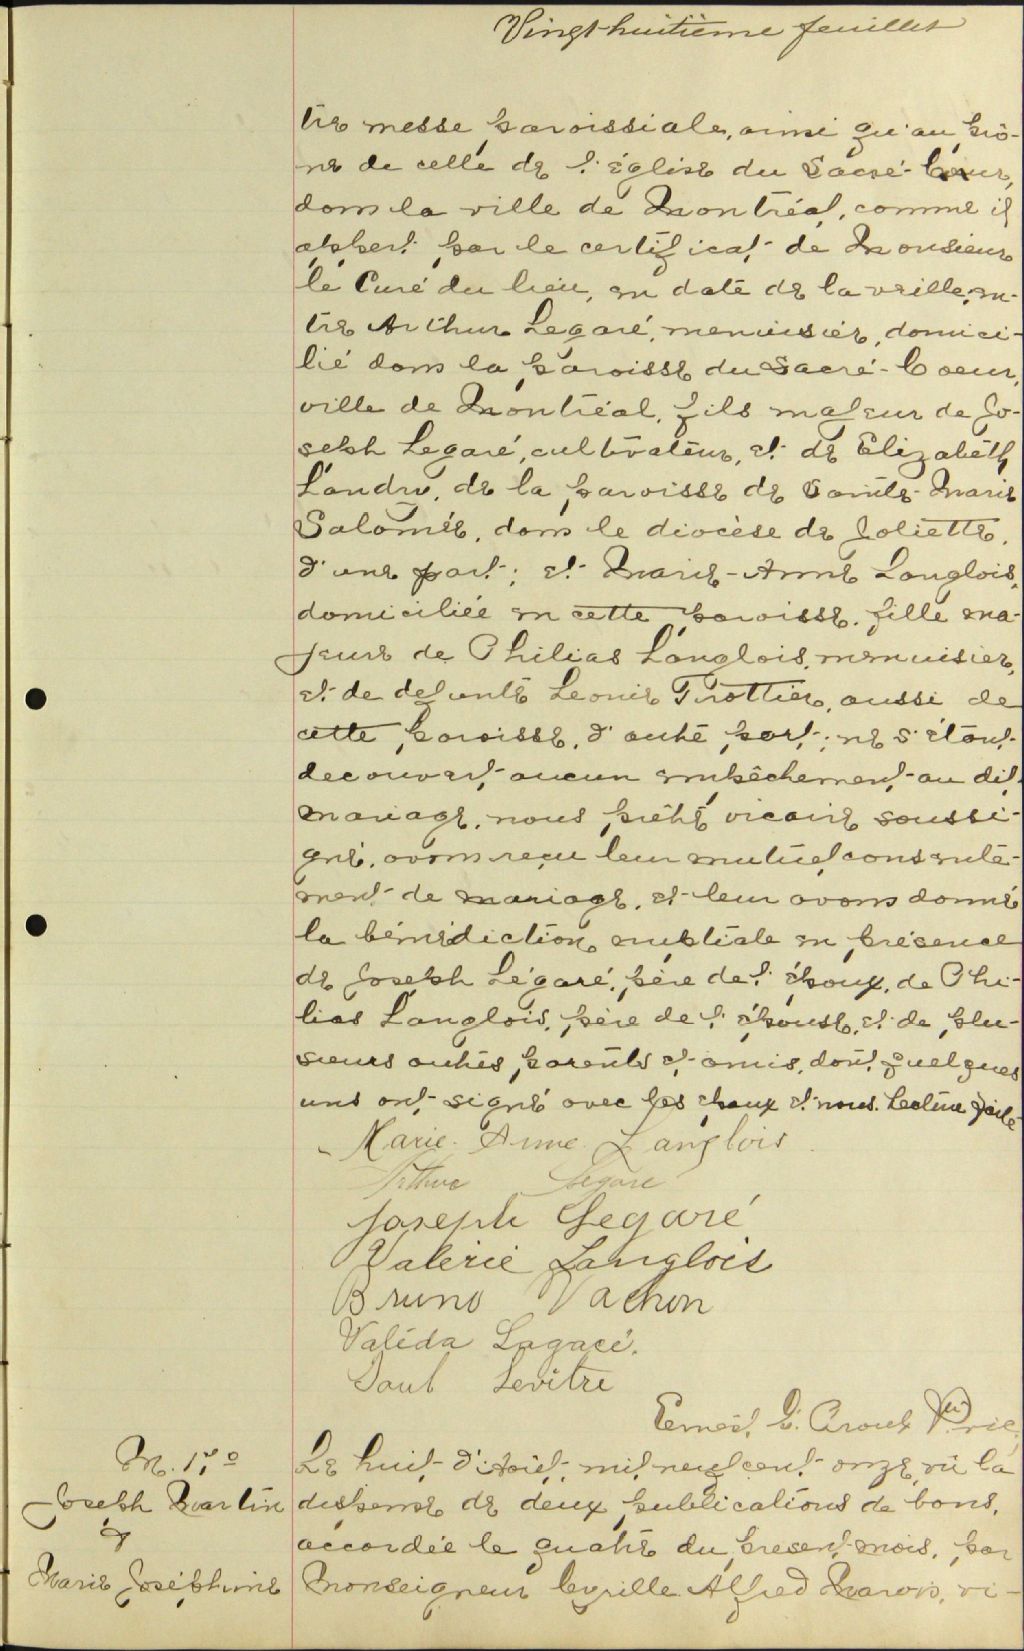 Vingt-huitième feuillet
tre messe paroissiale, ainsi qu'au prô-
ne de celle de l'église du Sacré-Coeur,
dans la ville de Montréal, comme il
appert par le certificat de Monsieur
le Curé du lieu, en date de la veille, en-
tre Arthur Legaré, menuisier, domici-
lié dans la paroisse du Sacré-Coeur,
ville de Montréal, fils majeur de Jo-
seph Legaré, cultivateur, et de Elizabeth
Landry, de la paroisse de Sainte-Marie
Salomée, dans le diocèse de Joliette,
d'une part; et Marie-Anne Langlois,
domiciliée en cette paroisse, fille ma-
jeure de Philias Langlois, menuisier,
et de defunte Leonie Trottier, aussi de
cette paroisse, d'autre part; ne s'étant
decouvert aucun empêchement au dit
mariage, nous prêtre vicaire soussi-
gné, avons reçu leur mutuel consente-
ment de mariage, et leur avons donné
la bénédiction nuptiale en présence
de Joseph Légaré, père de l'époux, de Phi-
lias Langlois, père de l'épouse, et de plu-
sieurs autres parents et amis, dont quelques
uns ont signé avec les epoux et nous. Lecture faite
Marie-Anne Langlois
Arthur Legaré
Joseph Legaré
Valerie Langlois
Bruno Vachon
Valéda Lagacé.
Paul Levitre
Ernest Ptre vic.
M. 17º
Joseph Martin
&
Marie Joséphine
Le huit d'Août, mil neuf cent onze, vu la
dispense de deux publications de bans,
accordée le quatre du present mois, par
Monseigneur Cyrille Alfred Marois, vi-